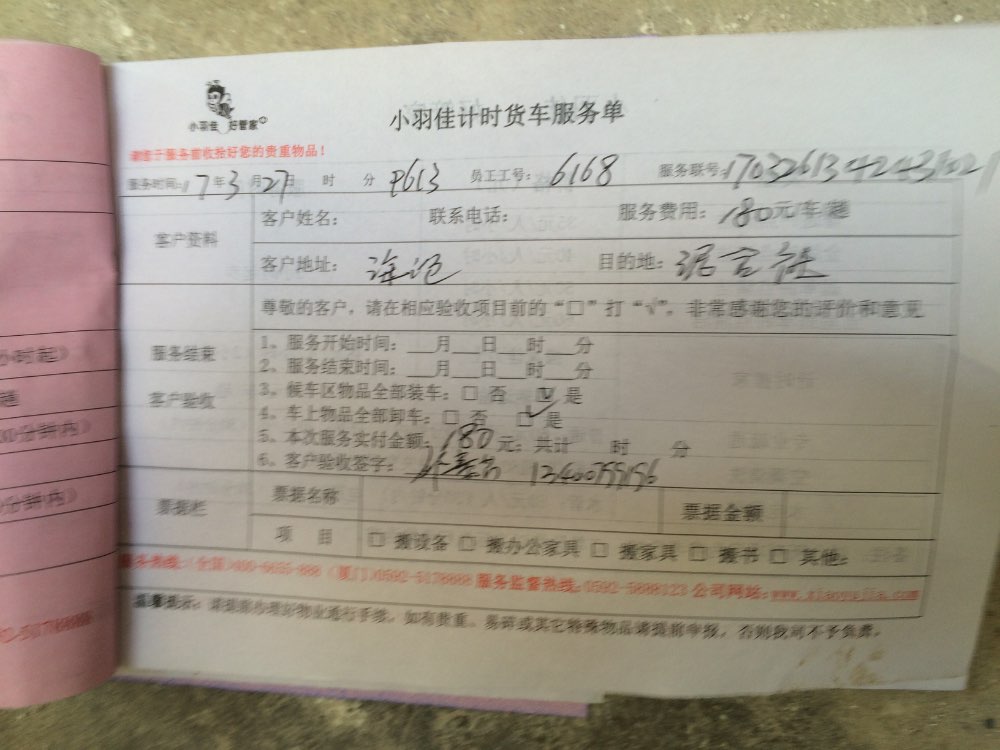 小羽佳 好管家
小羽佳计时货车服务单
请您于服务前收拾好您的贵重物品!
服务时间:17年3月27日 时 分 P613 员工工号: 6168 服务联号:
客户资料
客户姓名: 联系电话: 服务费用: 180元/车/趟
客户地址: 海沧 目的地:
尊敬的客户,请在相应验收项目前的“□”打“√”,非常感谢您的评价和意见
服务结束
客户验收
1、服务开始时间:___月___日___时___分
2、服务结束时间:___月___日___时___分
3、候车区物品全部装车: □ 否 ☑ 是
4、车上物品全部卸车: □ 否 ☑ 是
5、本次服务实付金额: 180 元; 共计 时 分
6、客户验收签字: 13400799196
票据栏
票据名称 票据金额
项 目 □ 搬设备 □ 搬办公家具 □ 搬家具 □ 搬书 □ 其他:
服务热线:(全国)400-6655-888 (厦门)0592-5178888 服务监督热线:0592-5888123 公司网站:www.xiaoyujia.com
温馨提示: 请提前办理好物业通行手续, 如有贵重、易碎或其它特殊物品请提前申报, 否则我司不予负责。
小时起)
趟
00分钟内)
0分钟内)